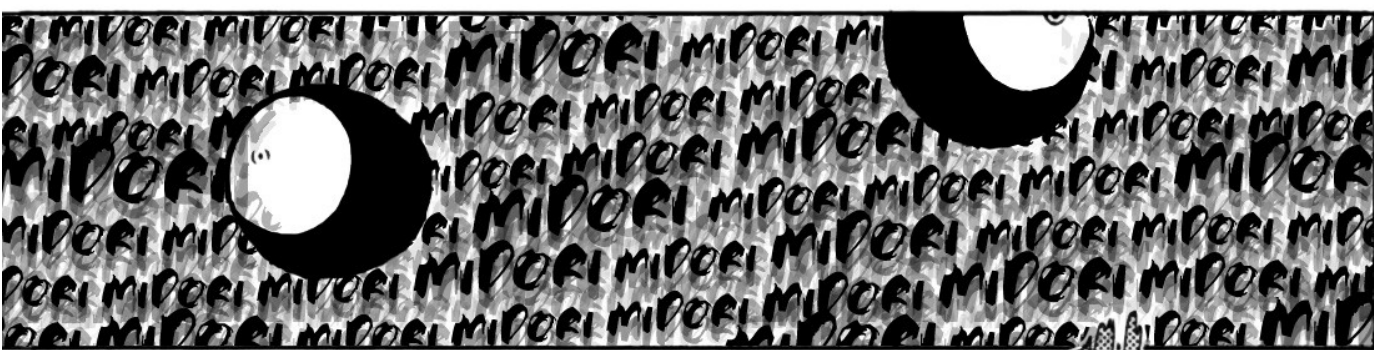 MIDORI MIDORI MIDORI MIDORI MIDORI
MIDORI MIDORI MIDORI MIDORI MIDORI
DORI MIDORI MIDORI MIDORI MIDORI MIDORI
MIDORI MIDORI MIDORI MIDORI MIDORI
MIDORI MIDORI MIDORI MIDORI MIDORI
MIDORI MIDORI MIDORI MIDORI MIDORI
DORI MIDORI MIDORI MIDORI MIDORI MIDORI
MIDORI MIDORI MIDORI MIDORI DORI MIDORI